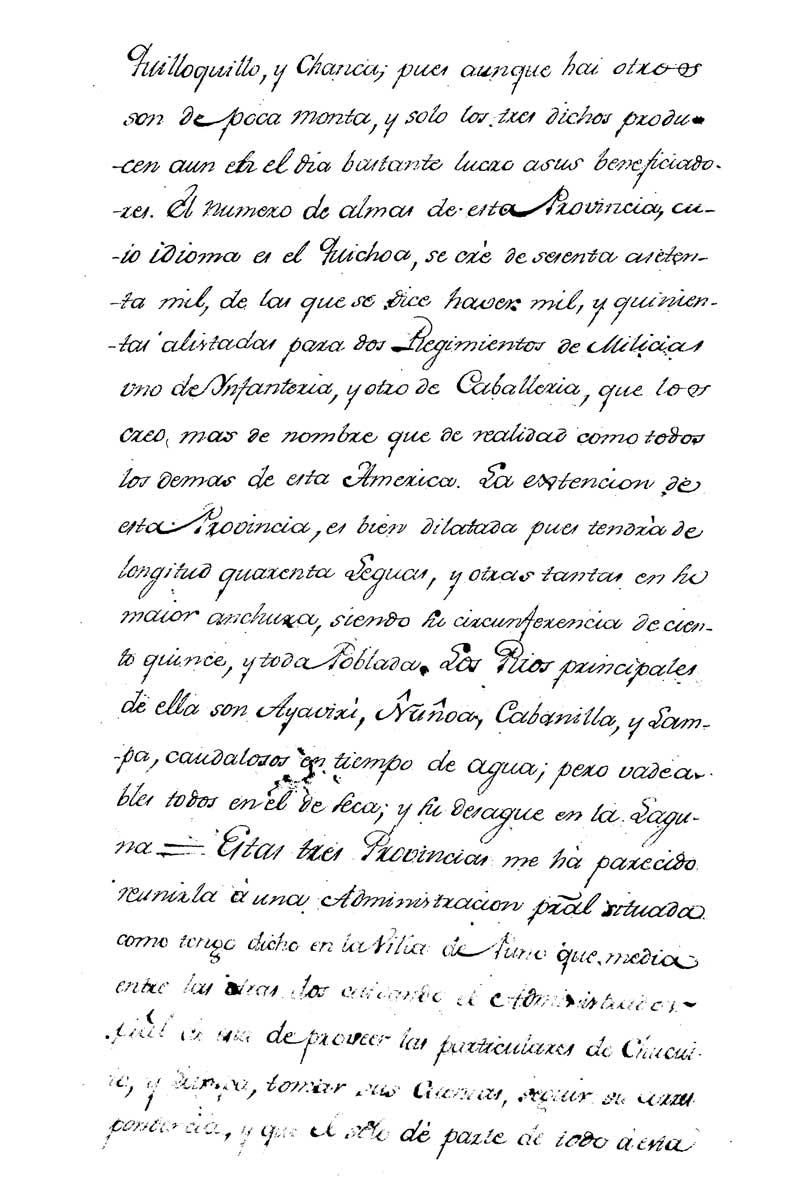 Quilloquillo, y Chanca; pues aunque hai otros
son de poca monta, y solo los tres dichos produ-
-cen aun en el dia bastante lucro asus beneficiado-
-res. El numero de almas de esta Provincia, cu-
-io idioma es el Quichoa, se cré de sesenta aseten-
-ta mil, de las que se dice haver mil, y quinien-
-tas alistadas para dos Regimientos de Milicias
uno de Ynfanteria, y otro de Caballeria, que los
creo, mas de nombre que de realidad como todos
los demas de esta America. La extencion de
esta Provincia, es bien dilatada pues tendrá de
longitud quarenta Leguas, y otras tantas en su
maior anchura, siendo su circunferencia de cien-
to quince, y toda Poblada. Los Rios principales
de ella son Ayaviri, Ñuñoa, Cabanilla, y Lam-
-pa, caudalosos en tiempo de agua; pero vadea-
bles todos en él de seca; y su desague en la Lagu-
na = Estas tres Provincias me há parecido
reunirla á una Administracion pr̃al situada
como tengo dicho en la Villa de Puno que media
entre las otras dos cuidando el Administrador
pr̃al de proveer las particulares de Chucui-
to, y Lampa, tomar sus Cuentas, seguir su corres
pondencia, y que el sólo dé parte de todo á esta